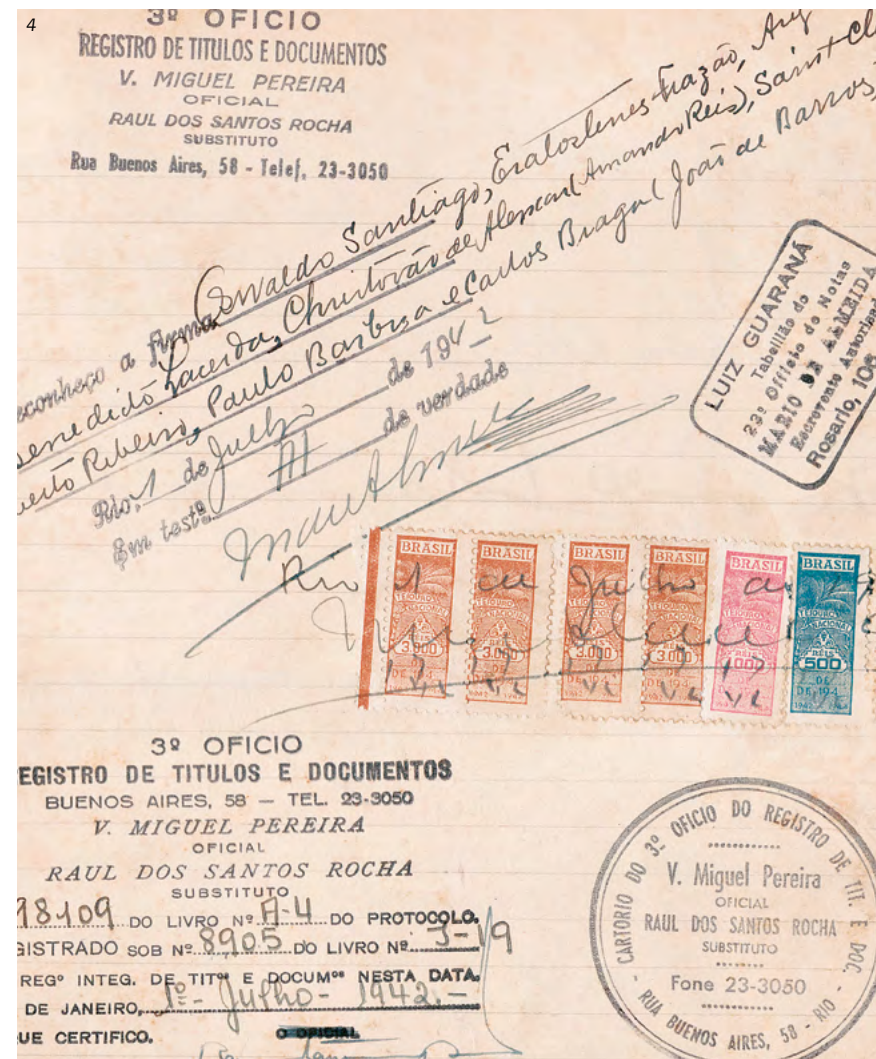 4
3º OFICIO
REGISTRO DE TITULOS E DOCUMENTOS
V. MIGUEL PEREIRA
OFICIAL
RAUL DOS SANTOS ROCHA
SUBSTITUTO
Rua Buenos Aires, 58 - Telef. 23-3050
econheço a firma Oswaldo Santiago, Eratostenes Frazão, Aug
Benedicto Lacerda, Christovão de Alencar (Armando Reis), Saint-Cl
berto Ribeiro, Paulo Barbosa e Carlos Braga (João de Barros,
Rio, 1 de Julho de 1942
Em testº de verdade
LUIZ GUARANÁ
Tabellião do
23º Officio de Notas
MARIO DE ALMEIDA
Escrevente Autorisad
Rosario, 106
BRASIL BRASIL BRASIL BRASIL BRASIL BRASIL
Rio 1 de Julho de 19
TESOURO NACIONAL
REIS
3.000 3.000 3.000 3.000 500
DE
DE 194
3º OFICIO
EGISTRO DE TITULOS E DOCUMENTOS
BUENOS AIRES, 58 — TEL. 23-3050
V. MIGUEL PEREIRA
OFICIAL
RAUL DOS SANTOS ROCHA
SUBSTITUTO
98109 DO LIVRO Nº A-4 DO PROTOCOLO.
GISTRADO SOB Nº 8905 DO LIVRO Nº J-19
REGº INTEG. DE TITºˢ E DOCUMºˢ NESTA DATA.
DE JANEIRO, 1º - Julho - 1942.-
UE CERTIFICO. O OFICIAL
CARTORIO DO 3º OFICIO DO REGISTRO DE TIT. E DOC.
V. Miguel Pereira
OFICIAL
RAUL DOS SANTOS ROCHA
SUBSTITUTO
Fone 23-3050
RUA BUENOS AIRES, 58 - RIO -